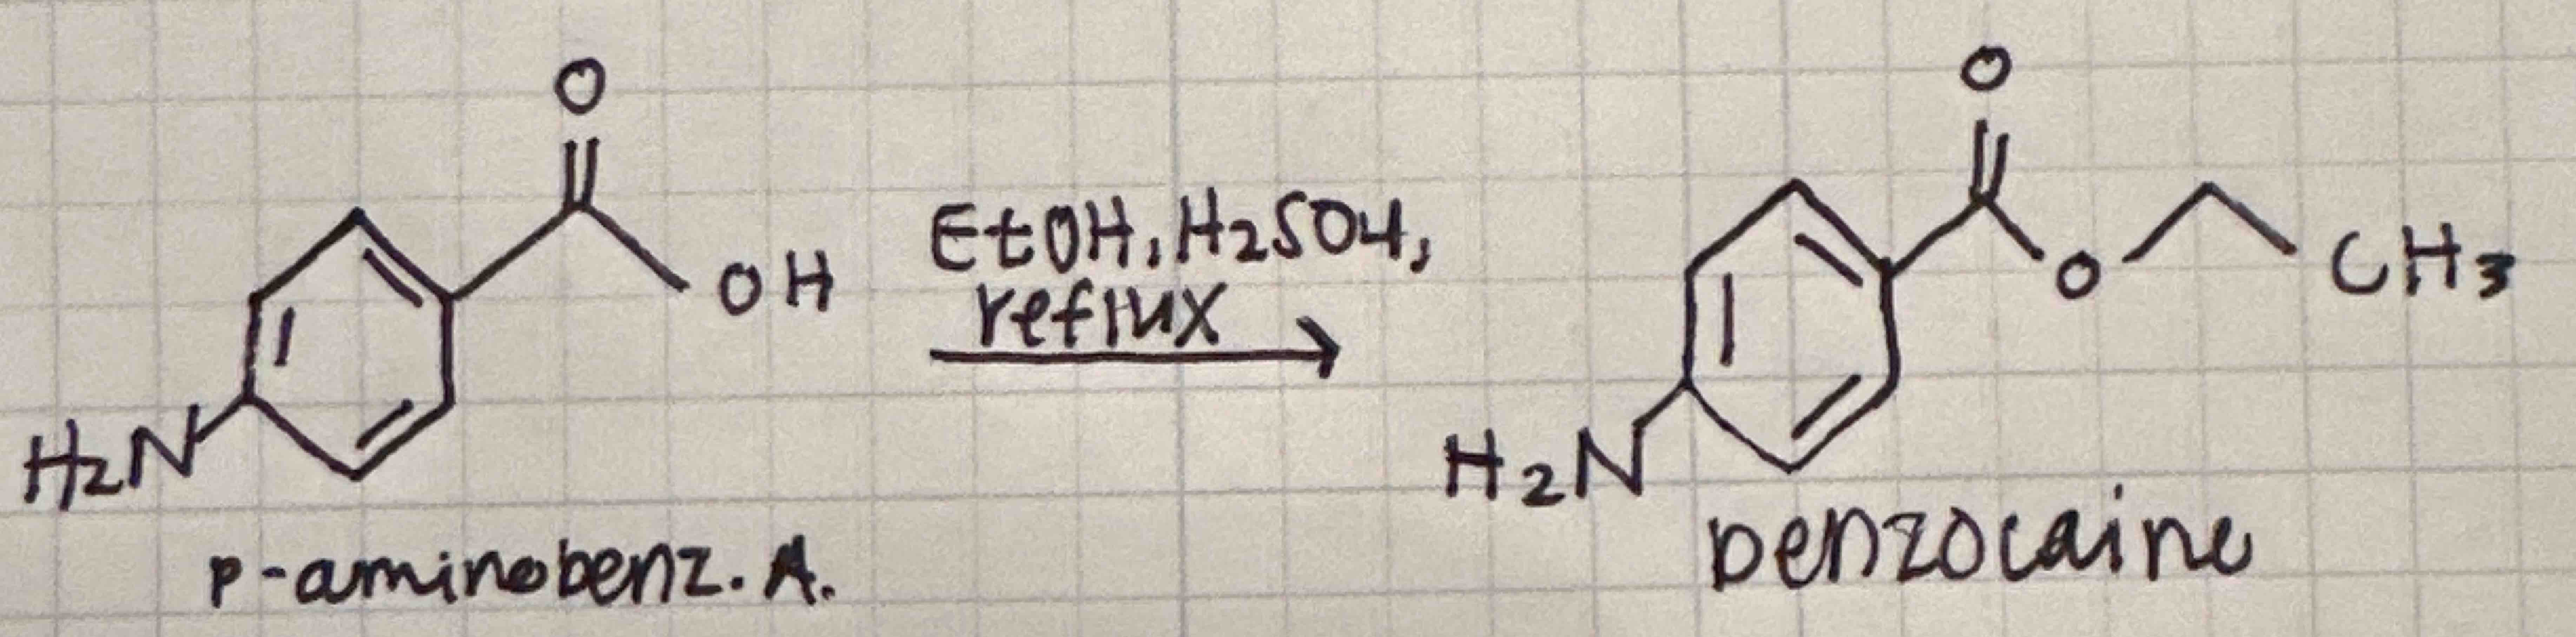 O
OH
H2N
p-aminobenz. A.
EtOH, H2SO4,
reflux
O
O
CH3
H2N
benzocaine